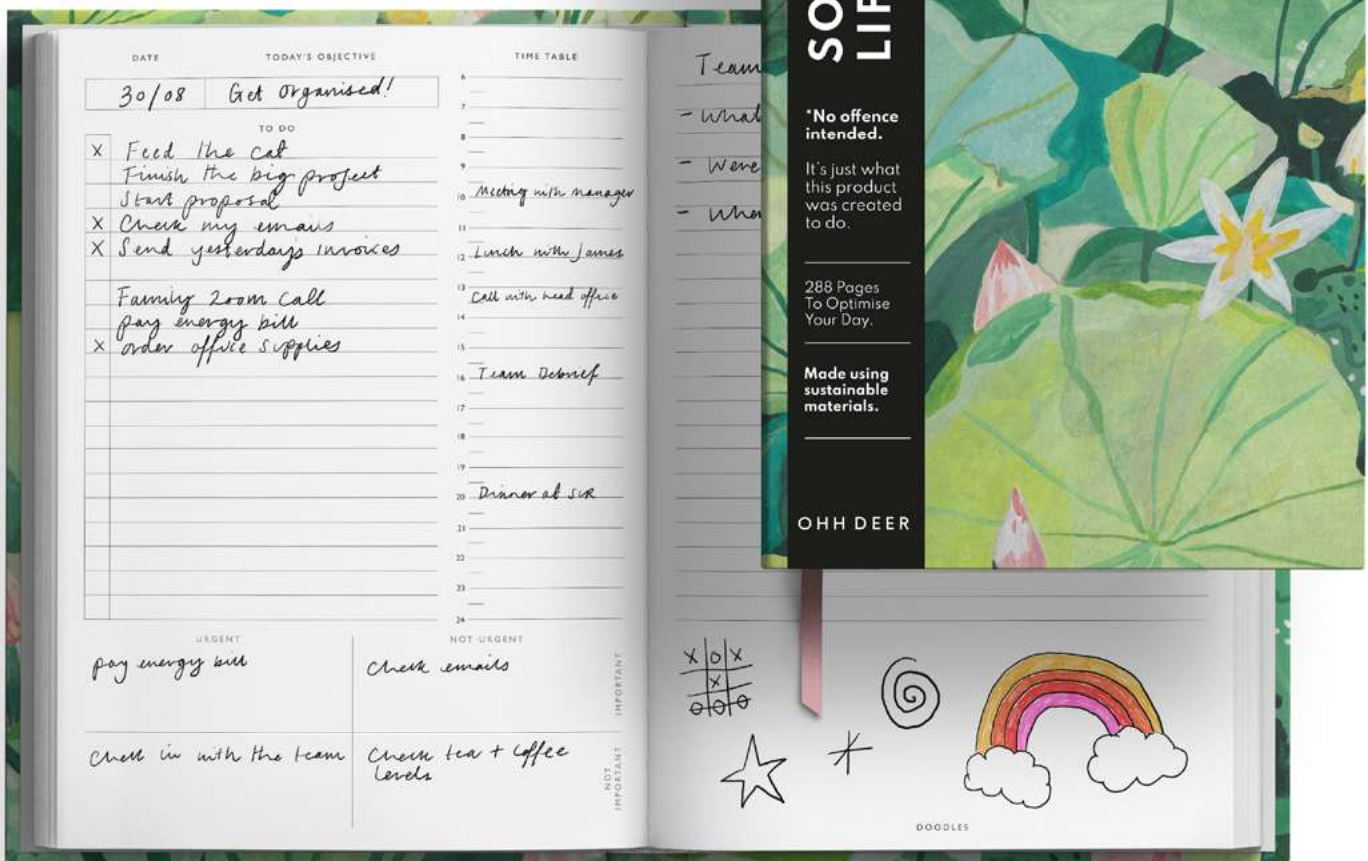 DATE TODAY'S OBJECTIVE
30/08 Get Organised!
TO DO
X Feed the cat
Finish the big project
Start proposal
X Check my emails
X Send yesterday's invoices
Family Zoom Call
pay energy bill
X order office supplies
TIME TABLE
6
7
8
9
10 Meeting with manager
11
12 Lunch with James
13 Call with head office
14
15
16 Team Debrief
17
18
19
20 Dinner at
21
22
23
24
URGENT
NOT URGENT
pay energy bill
Check emails
IMPORTANT
Check in with the team
Check tea + coffee
levels
NOT
IMPORTANT
Team
- What
- Were
X O X
X
O O O
DOODLES
SO
LIF
*No offence
intended.
It's just what
this product
was created
to do.
288 Pages
To Optimise
Your Day.
Made using
sustainable
materials.
OHH DEER